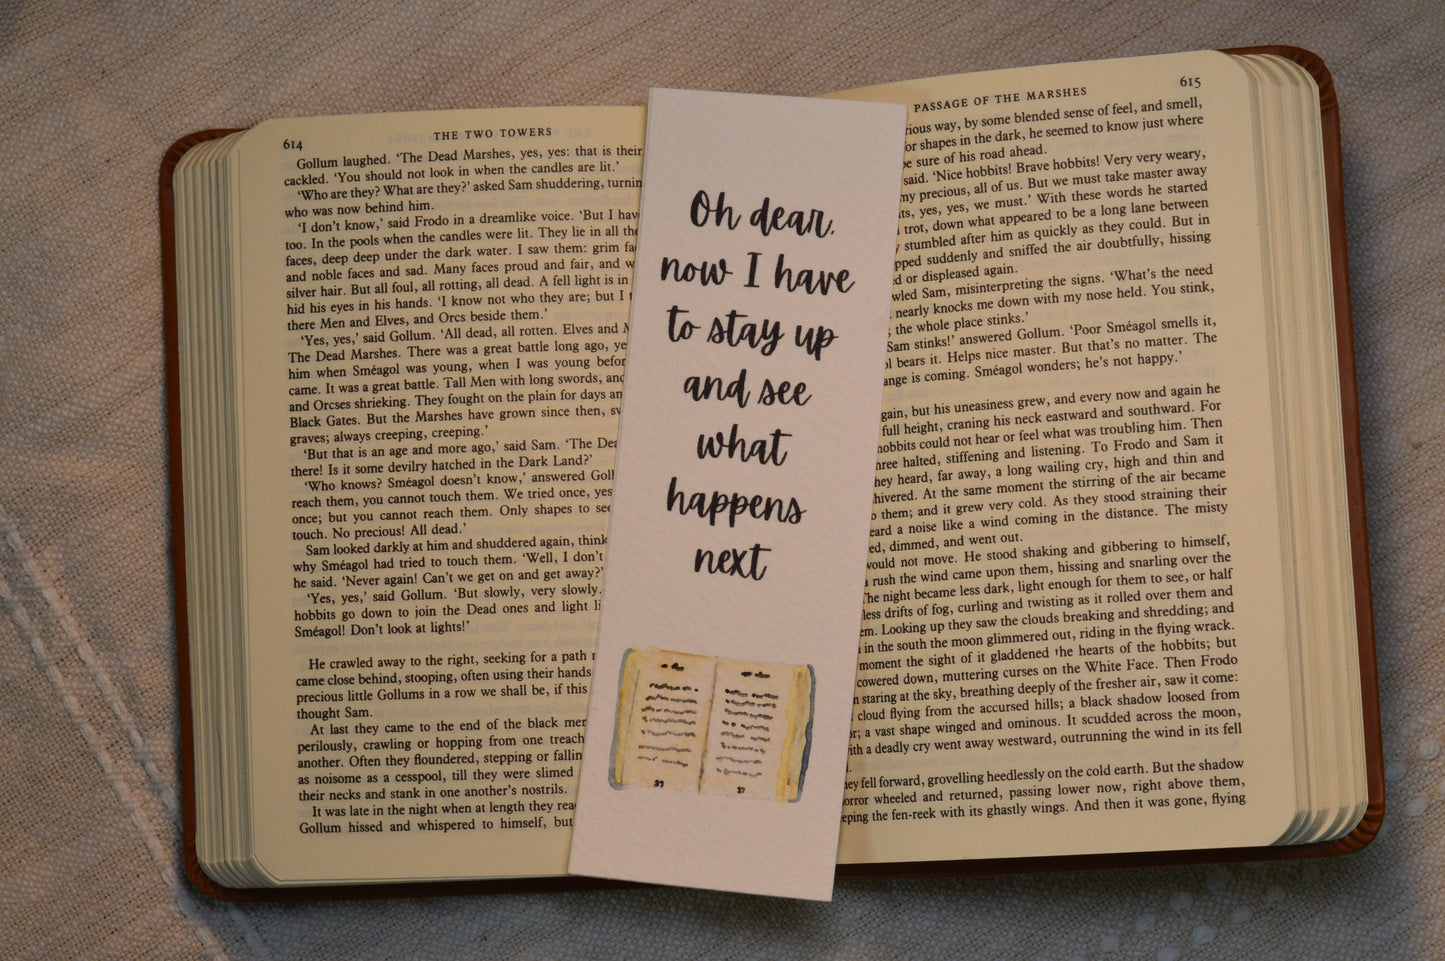 614
THE TWO TOWERS
Gollum laughed. ‘The Dead Marshes, yes, yes: that is their
cackled. ‘You should not look in when the candles are lit.’
‘Who are they? What are they?’ asked Sam shuddering, turnin
who was now behind him.
‘I don’t know,’ said Frodo in a dreamlike voice. ‘But I hav
too. In the pools when the candles were lit. They lie in all the
faces, deep deep under the dark water. I saw them: grim fa
and noble faces and sad. Many faces proud and fair, and w
silver hair. But all foul, all rotting, all dead. A fell light is in
hid his eyes in his hands. ‘I know not who they are; but I
there Men and Elves, and Orcs beside them.’
‘Yes, yes,’ said Gollum. ‘All dead, all rotten. Elves and M
The Dead Marshes. There was a great battle long ago, ye
him when Sméagol was young, when I was young befor
came. It was a great battle. Tall Men with long swords, and
and Orcses shrieking. They fought on the plain for days an
Black Gates. But the Marshes have grown since then, sw
graves; always creeping, creeping.’
‘But that is an age and more ago,’ said Sam. ‘The Dea
there! Is it some devilry hatched in the Dark Land?’
‘Who knows? Sméagol doesn’t know,’ answered Goll
reach them, you cannot touch them. We tried once, yes
once; but you cannot reach them. Only shapes to see
touch. No precious! All dead.’
Sam looked darkly at him and shuddered again, think
why Sméagol had tried to touch them. ‘Well, I don’t
he said. ‘Never again! Can’t we get on and get away?’
‘Yes, yes,’ said Gollum. ‘But slowly, very slowly.
hobbits go down to join the Dead ones and light li
Sméagol! Don’t look at lights!’
He crawled away to the right, seeking for a path
came close behind, stooping, often using their hands
precious little Gollums in a row we shall be, if this
thought Sam.
At last they came to the end of the black mer
perilously, crawling or hopping from one treach
another. Often they floundered, stepping or fallin
as noisome as a cesspool, till they were slimed
their necks and stank in one another’s nostrils.
It was late in the night when at length they reac
Gollum hissed and whispered to himself, but
Oh dear,
now I have
to stay up
and see
what
happens
next
PASSAGE OF THE MARSHES
615
rious way, by some blended sense of feel, and smell,
or shapes in the dark, he seemed to know just where
be sure of his road ahead.
said. ‘Nice hobbits! Brave hobbits! Very very weary,
my precious, all of us. But we must take master away
ts, yes, yes, we must.’ With these words he started
trot, down what appeared to be a long lane between
stumbled after him as quickly as they could. But in
pped suddenly and sniffed the air doubtfully, hissing
d or displeased again.
wled Sam, misinterpreting the signs. ‘What’s the need
nearly knocks me down with my nose held. You stink,
; the whole place stinks.’
Sam stinks!’ answered Gollum. ‘Poor Sméagol smells it,
l bears it. Helps nice master. But that’s no matter. The
ange is coming. Sméagol wonders; he’s not happy.’
gain, but his uneasiness grew, and every now and again he
full height, craning his neck eastward and southward. For
hobbits could not hear or feel what was troubling him. Then
hree halted, stiffening and listening. To Frodo and Sam it
hey heard, far away, a long wailing cry, high and thin and
hivered. At the same moment the stirring of the air became
o them; and it grew very cold. As they stood straining their
eard a noise like a wind coming in the distance. The misty
ed, dimmed, and went out.
would not move. He stood shaking and gibbering to himself,
a rush the wind came upon them, hissing and snarling over the
The night became less dark, light enough for them to see, or half
less drifts of fog, curling and twisting as it rolled over them and
em. Looking up they saw the clouds breaking and shredding; and
in the south the moon glimmered out, riding in the flying wrack.
moment the sight of it gladdened the hearts of the hobbits; but
cowered down, muttering curses on the White Face. Then Frodo
n staring at the sky, breathing deeply of the fresher air, saw it come:
cloud flying from the accursed hills; a black shadow loosed from
or; a vast shape winged and ominous. It scudded across the moon,
ith a deadly cry went away westward, outrunning the wind in its fell
.
ey fell forward, grovelling heedlessly on the cold earth. But the shadow
orror wheeled and returned, passing lower now, right above them,
eping the fen-reek with its ghastly wings. And then it was gone, flying